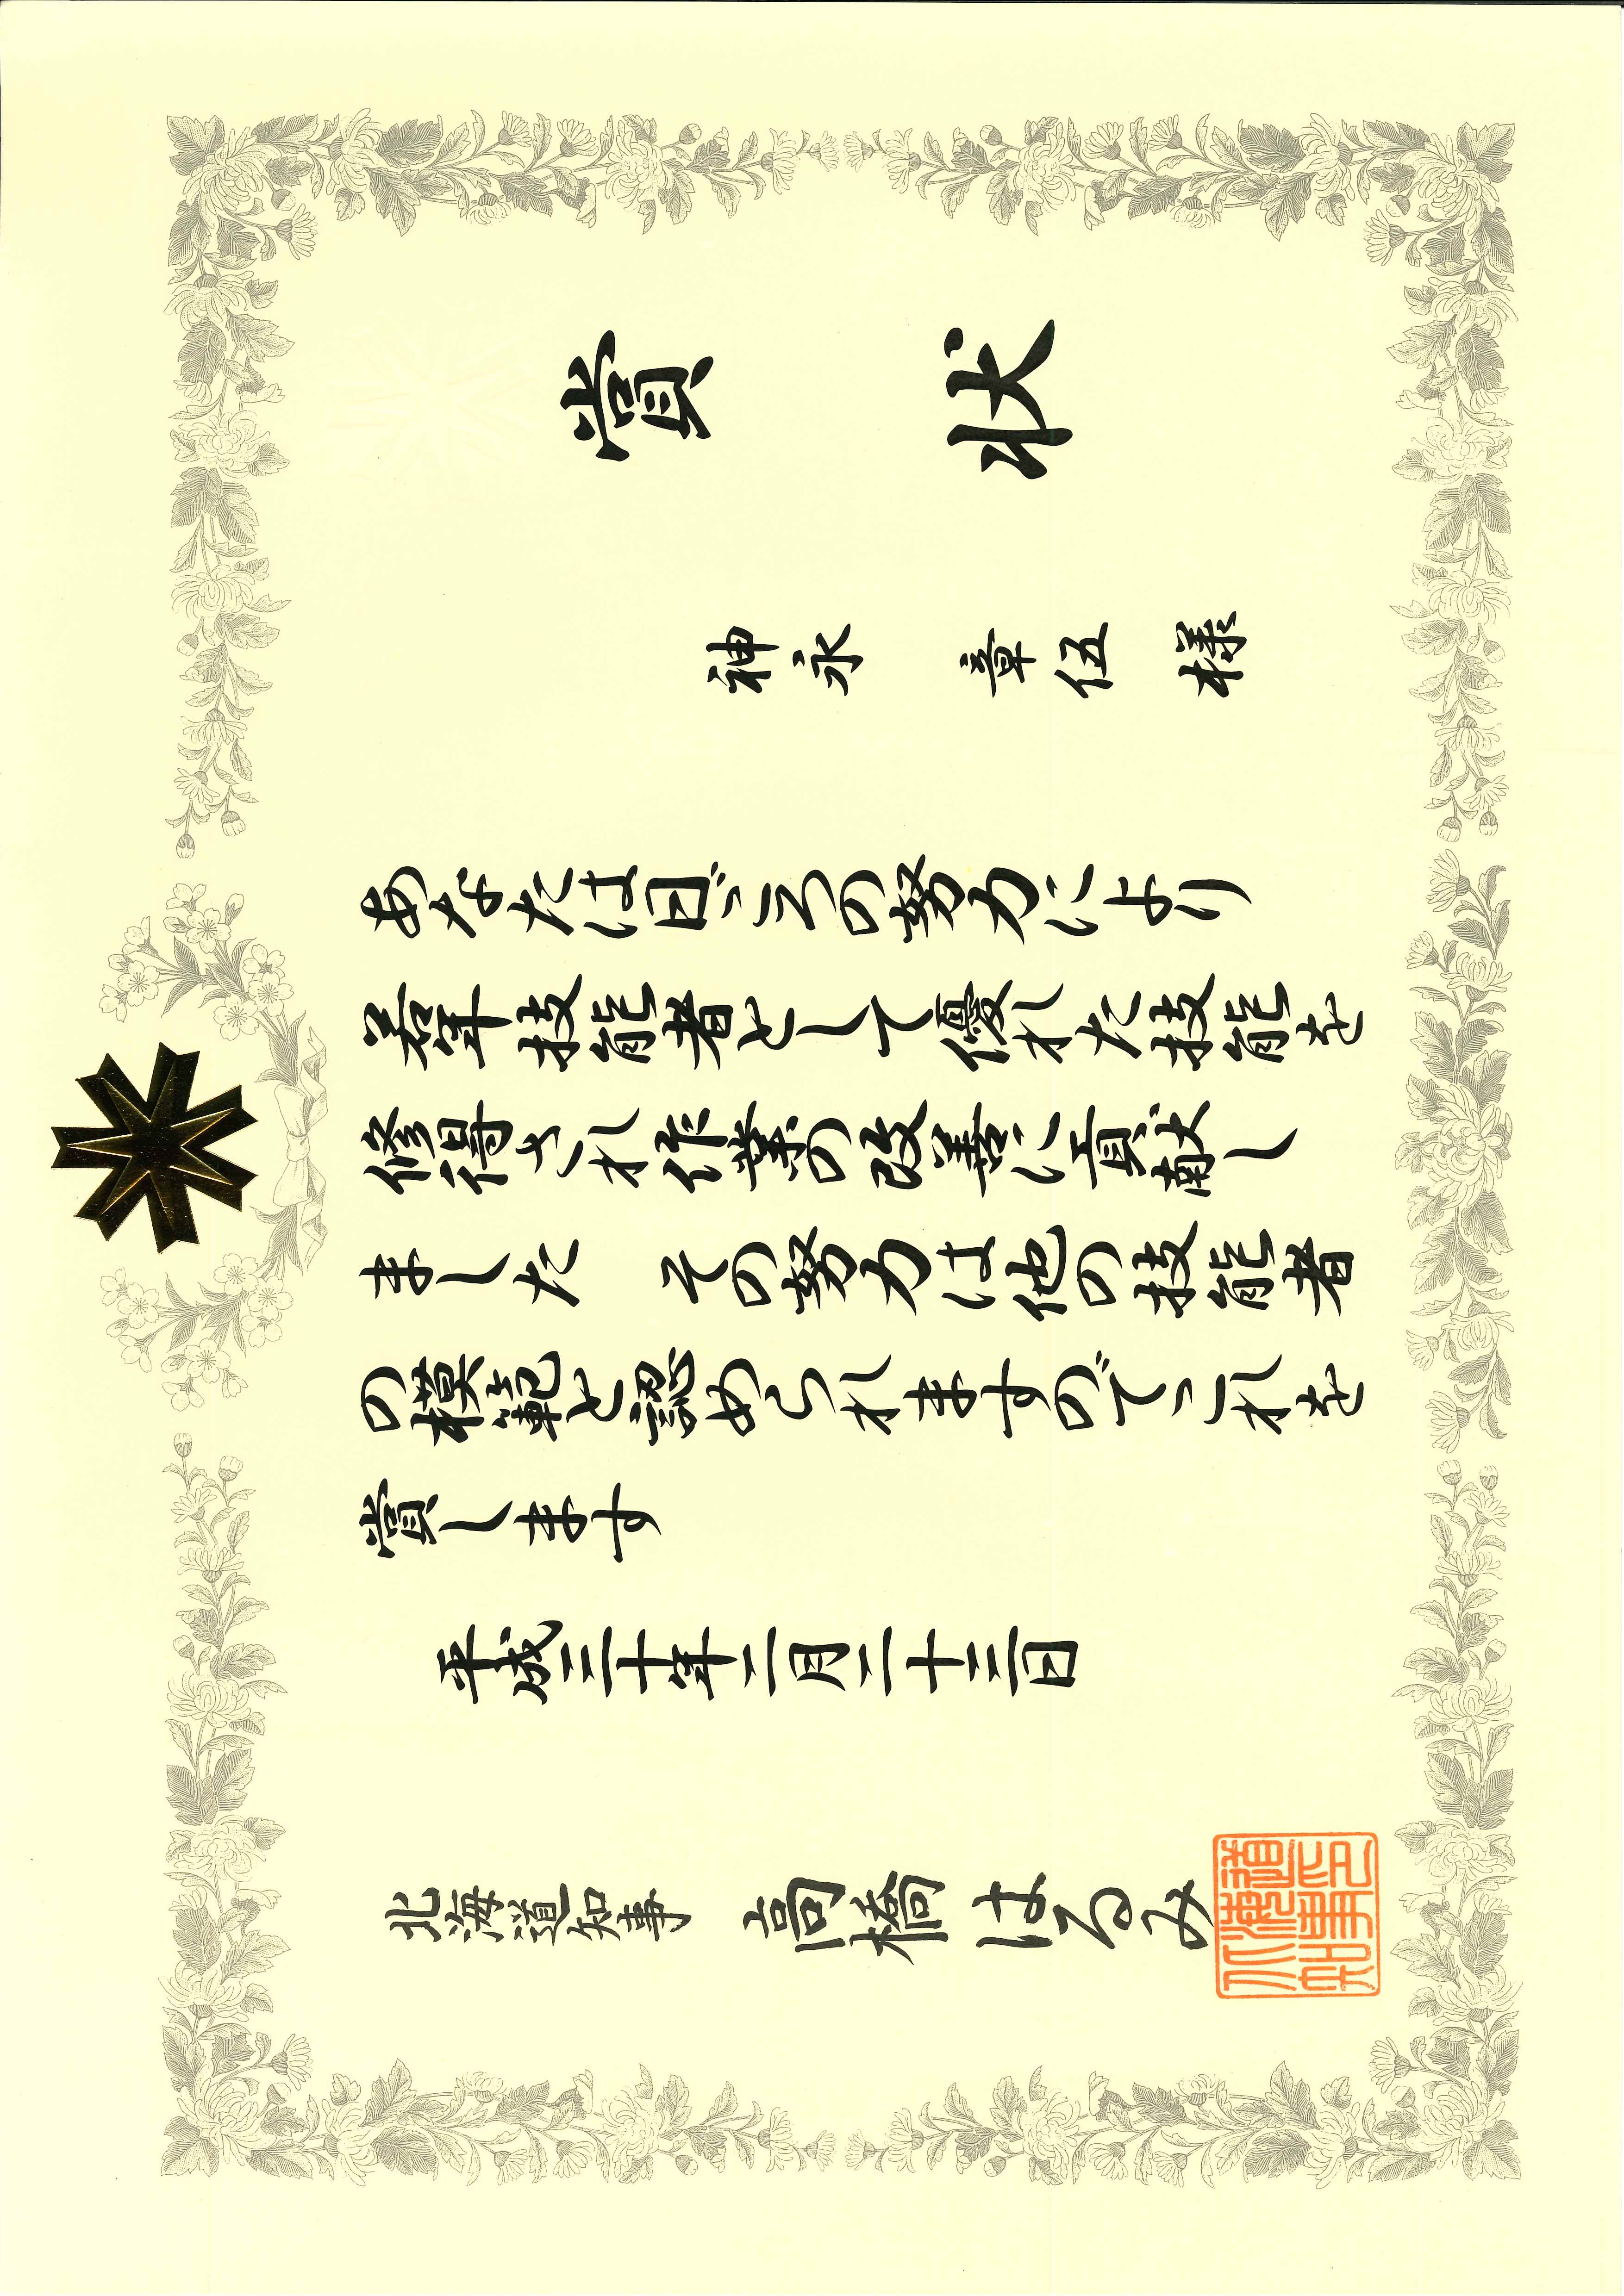 賞状
神永 章伍 様
あなたは日ごろの努力により
若年技能者として優れた技能を
修得され作業の改善に貢献し
ました その努力は他の技能者
の模範と認められますのでこれを
賞します
平成三十年二月二十三日
北海道知事 高橋はるみ
北海道
知事印